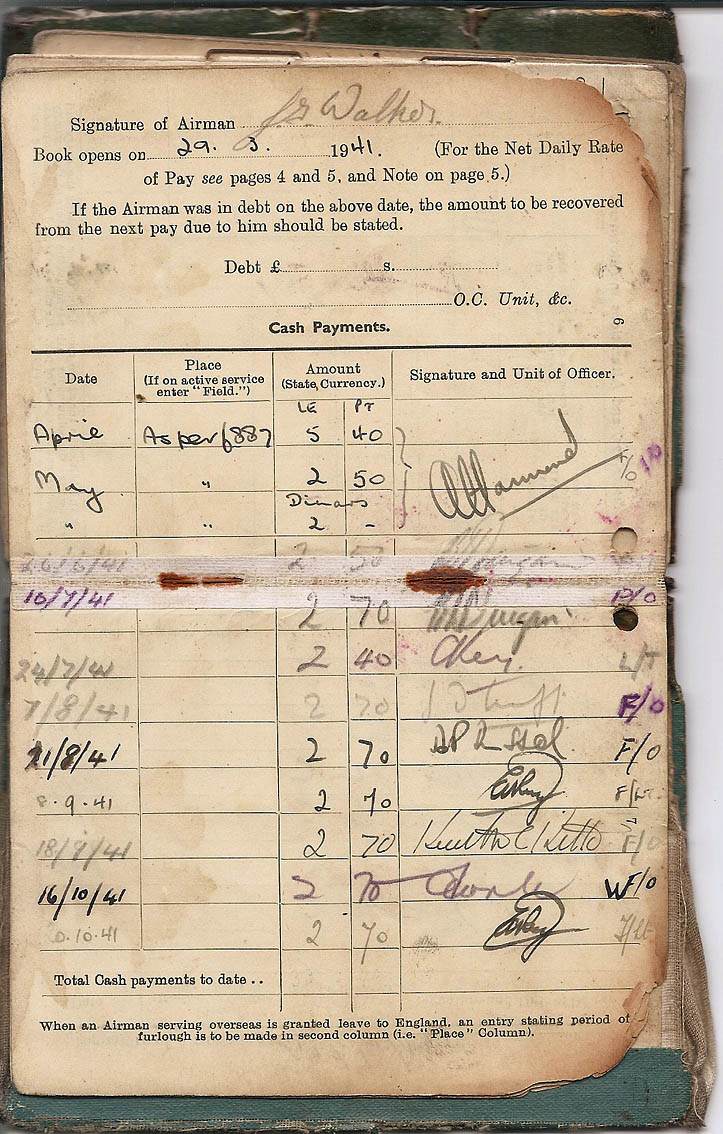 Signature of Airman J.G. Walker.
Book opens on 29. 3. 1941. (For the Net Daily Rate
of Pay see pages 4 and 5, and Note on page 5.)
If the Airman was in debt on the above date, the amount to be recovered
from the next pay due to him should be stated.
Debt £ s.
O.C. Unit, &c.
6
Cash Payments.
Date Place (If on active service enter "Field.") Amount (State, Currency.) Signature and Unit of Officer.
LE PT
April As per 6887 5 40
May " 2 50 F/O
Dinars
" " 2 -
26/6/41 2 50
10/7/41 2 70 P/O
24/7/41 2 40 L/T
7/8/41 2 70 F/O
21/8/41 2 70 F/O
8.9.41 2 70 F/Lt
18/9/41 2 70 F/O
16/10/41 2 70 W F/O
0.10.41 2 70 F/Lt
Total Cash payments to date ..
When an Airman serving overseas is granted leave to England, an entry stating period of
furlough is to be made in second column (i.e. "Place" Column).